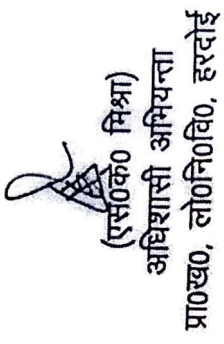 (एस०के० मिश्रा)
अधिशासी अभियन्ता
प्रा०ख०, लो०नि०वि०, हरदोई